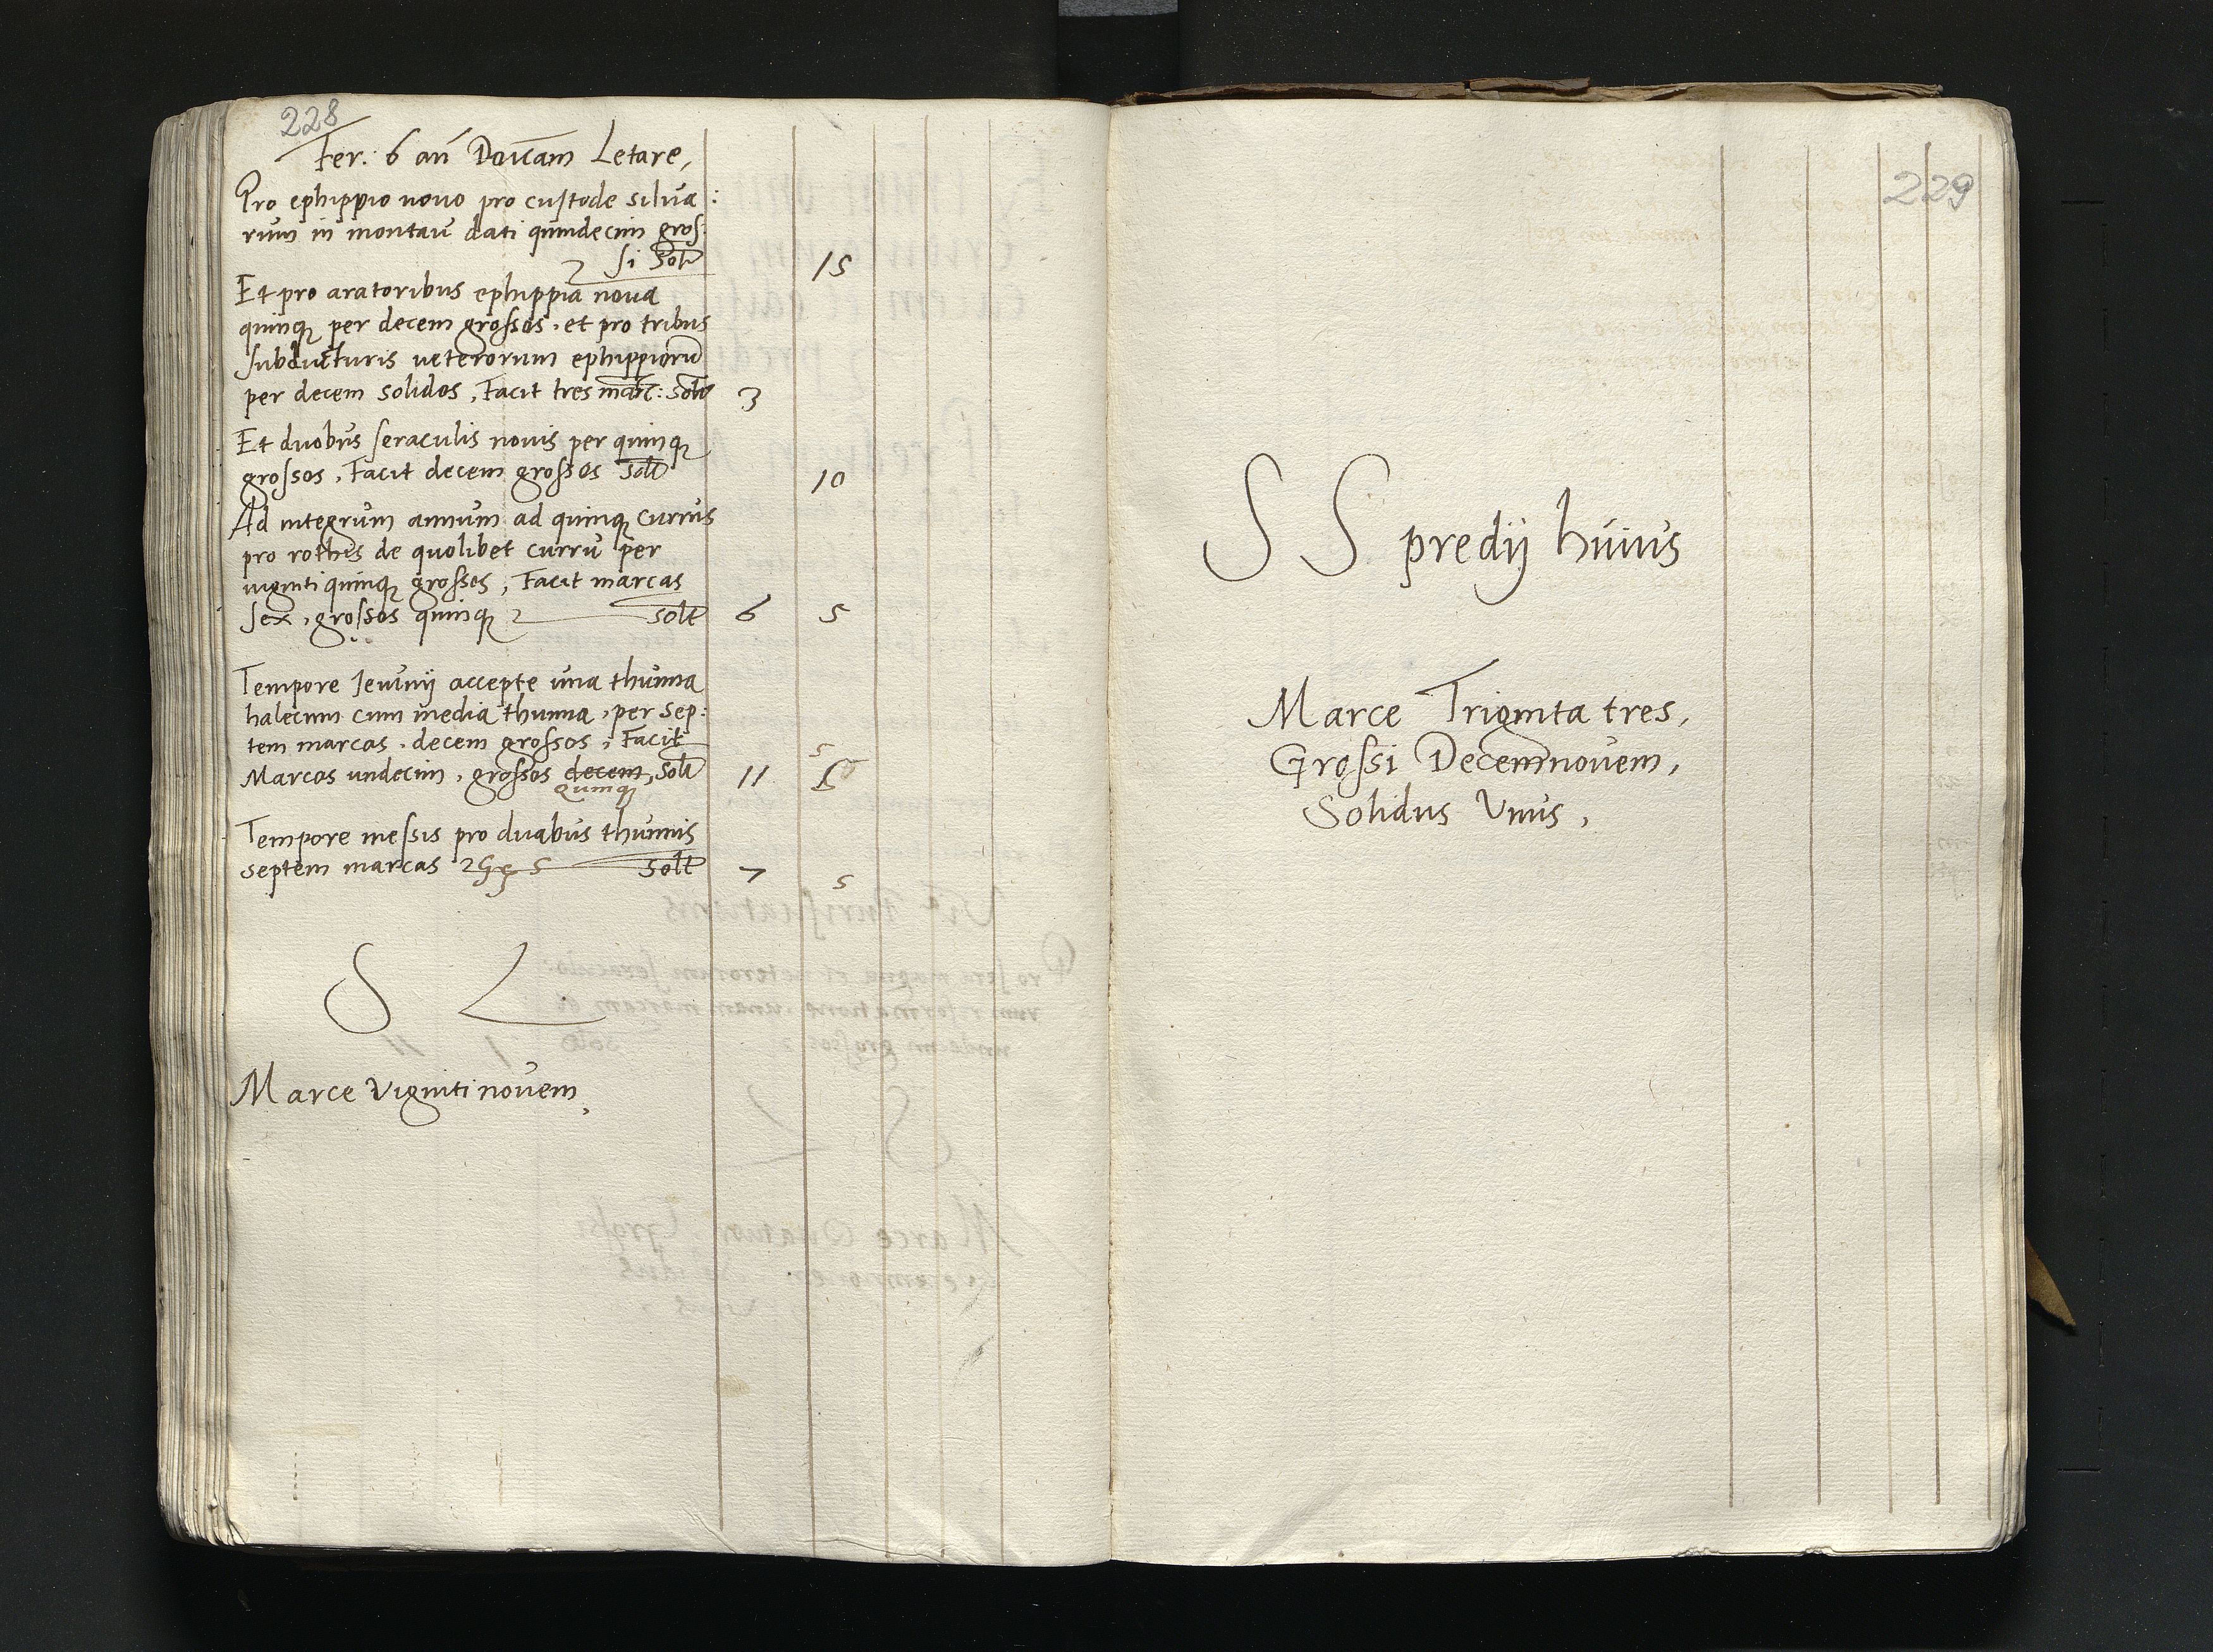 228
Fer. 6 an̄ Doīcam Letare,
Pro ephippio nouo pro custode silua:
rum in montau dati quindecim gros:
si Solt 15
Et pro aratoribus ephippia noua
quinq per decem grossos, et pro tribus
subducturis veterorum ephippiorū
per decem solidos, Facit tres marc: solt 3
Et duobus seraculis nouis per quinq
grossos, Facit decem grossos solt 10
Ad integrum annum ad quinq currus
pro rothis de quolibet curru per
viginti quinq grossos, Facit marcas
sex, grossos quinq solt 6 5
Tempore Ieiunij accepte una thunna
halecum cum media thunna, per sep:
tem marcas, decem grossos, Facit
5
Marcas undecim, grossos decem, solt 11
quinq
Tempore messis pro duabus thunnis
septem marcas 5 solt 7 5
S L
Marce Viginti nouem,
229
S S predij huius
Marce Triginta tres,
Grossi Decemnouem,
Solidus Vnus,